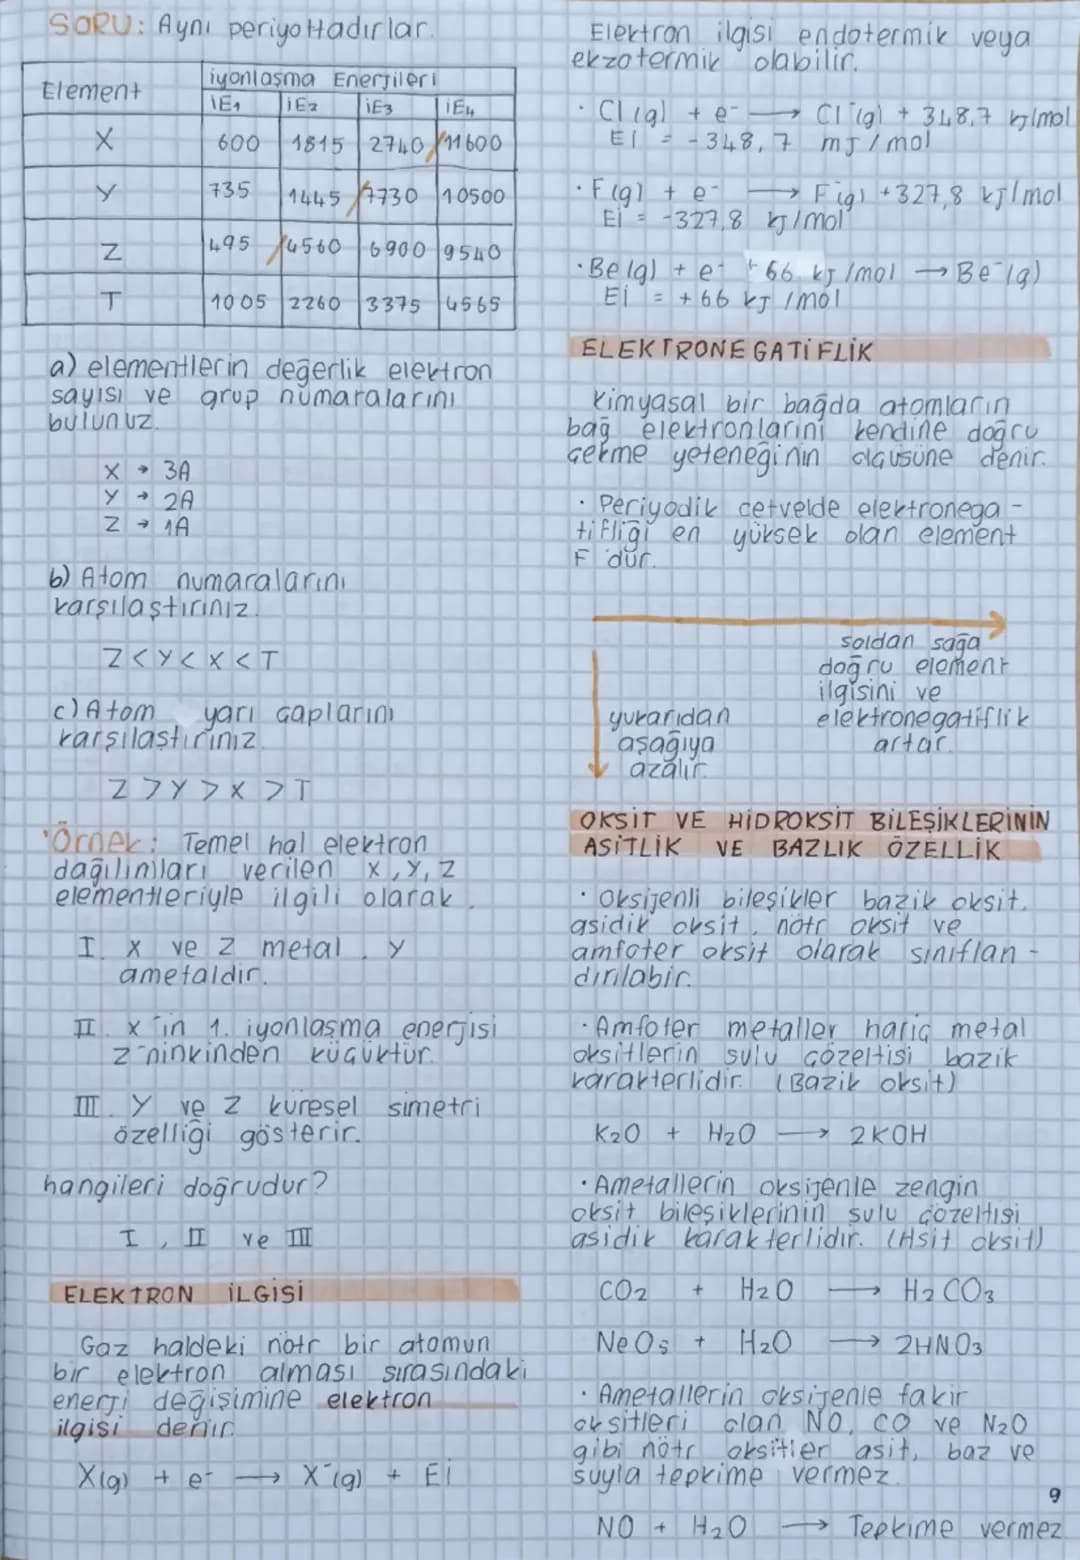 SORU: Aynı periyottadırlar.
Element
iyonlaşma Enerjileri
İE1 İE2 İE3 İE4
X 600 1815 2740 11600
Y 735 1445 7730 10500
Z 495 4560 6900 9540
T 1005 2260 3375 4565
a) elementlerin değerlik elektron
sayısı ve grup numaralarını
bulunuz.
X → 3A
Y → 2A
Z → 1A
b) Atom numaralarını
karşılaştırınız.
Z < Y < X < T
c) Atom yarı çaplarını
karşılaştırınız.
Z > Y > X > T
Örnek: Temel hal elektron
dağılımları verilen X, Y, Z
elementleriyle ilgili olarak,
I. X ve Z metal, Y
ametaldir.
II. X'in 1. iyonlaşma enerjisi
Z'ninkinden küçüktür.
III. Y ve Z küresel simetri
özelliği gösterir.
hangileri doğrudur?
I, II ve III
ELEKTRON İLGİSİ
Gaz haldeki nötr bir atomun
bir elektron alması sırasındaki
enerji değişimine elektron
ilgisi denir.
X(g) + e- → X-(g) + Eİ
Elektron ilgisi endotermik veya
ekzotermik olabilir.
· Cl(g) + e- → Cl-(g) + 348,7 kj/mol
Eİ = -348,7 mJ/mol
· F(g) + e- → F(g) +327,8 kJ/mol
Eİ = -327,8 kJ/mol
· Be(g) + e- +66 kJ/mol → Be-(g)
Eİ = +66 kJ/mol
ELEKTRONEGATİFLİK
Kimyasal bir bağda atomların
bağ elektronlarını kendine doğru
çekme yeteneğinin ölçüsüne denir.
· Periyodik cetvelde elektronega-
tifliği en yüksek olan element
F'dür.
soldan sağa
doğru element
ilgisini ve
elektronegatiflik
artar.
yukarıdan
aşağıya
azalır.
OKSİT VE HİDROKSİT BİLEŞİKLERİNİN
ASİTLİK VE BAZLIK ÖZELLİK
· Oksijenli bileşikler bazik oksit,
asidik oksit, nötr oksit ve
amfoter oksit olarak sınıflan-
dırılabir.
· Amfoter metaller hariç metal
oksitlerin sulu çözeltisi bazik
karakterlidir. (Bazik oksit)
K2O + H2O → 2KOH
· Ametallerin oksijenle zengin
oksit bileşiklerinin sulu çözeltisi
asidik karakterlidir. (Asit oksit)
CO2 + H2O → H2CO3
NeO5 + H2O → 2HNO3
· Ametallerin oksijenle fakir
oksitleri olan NO, CO ve N2O
gibi nötr oksitler asit, baz ve
suyla tepkime vermez.
NO + H2O → Tepkime vermez
9